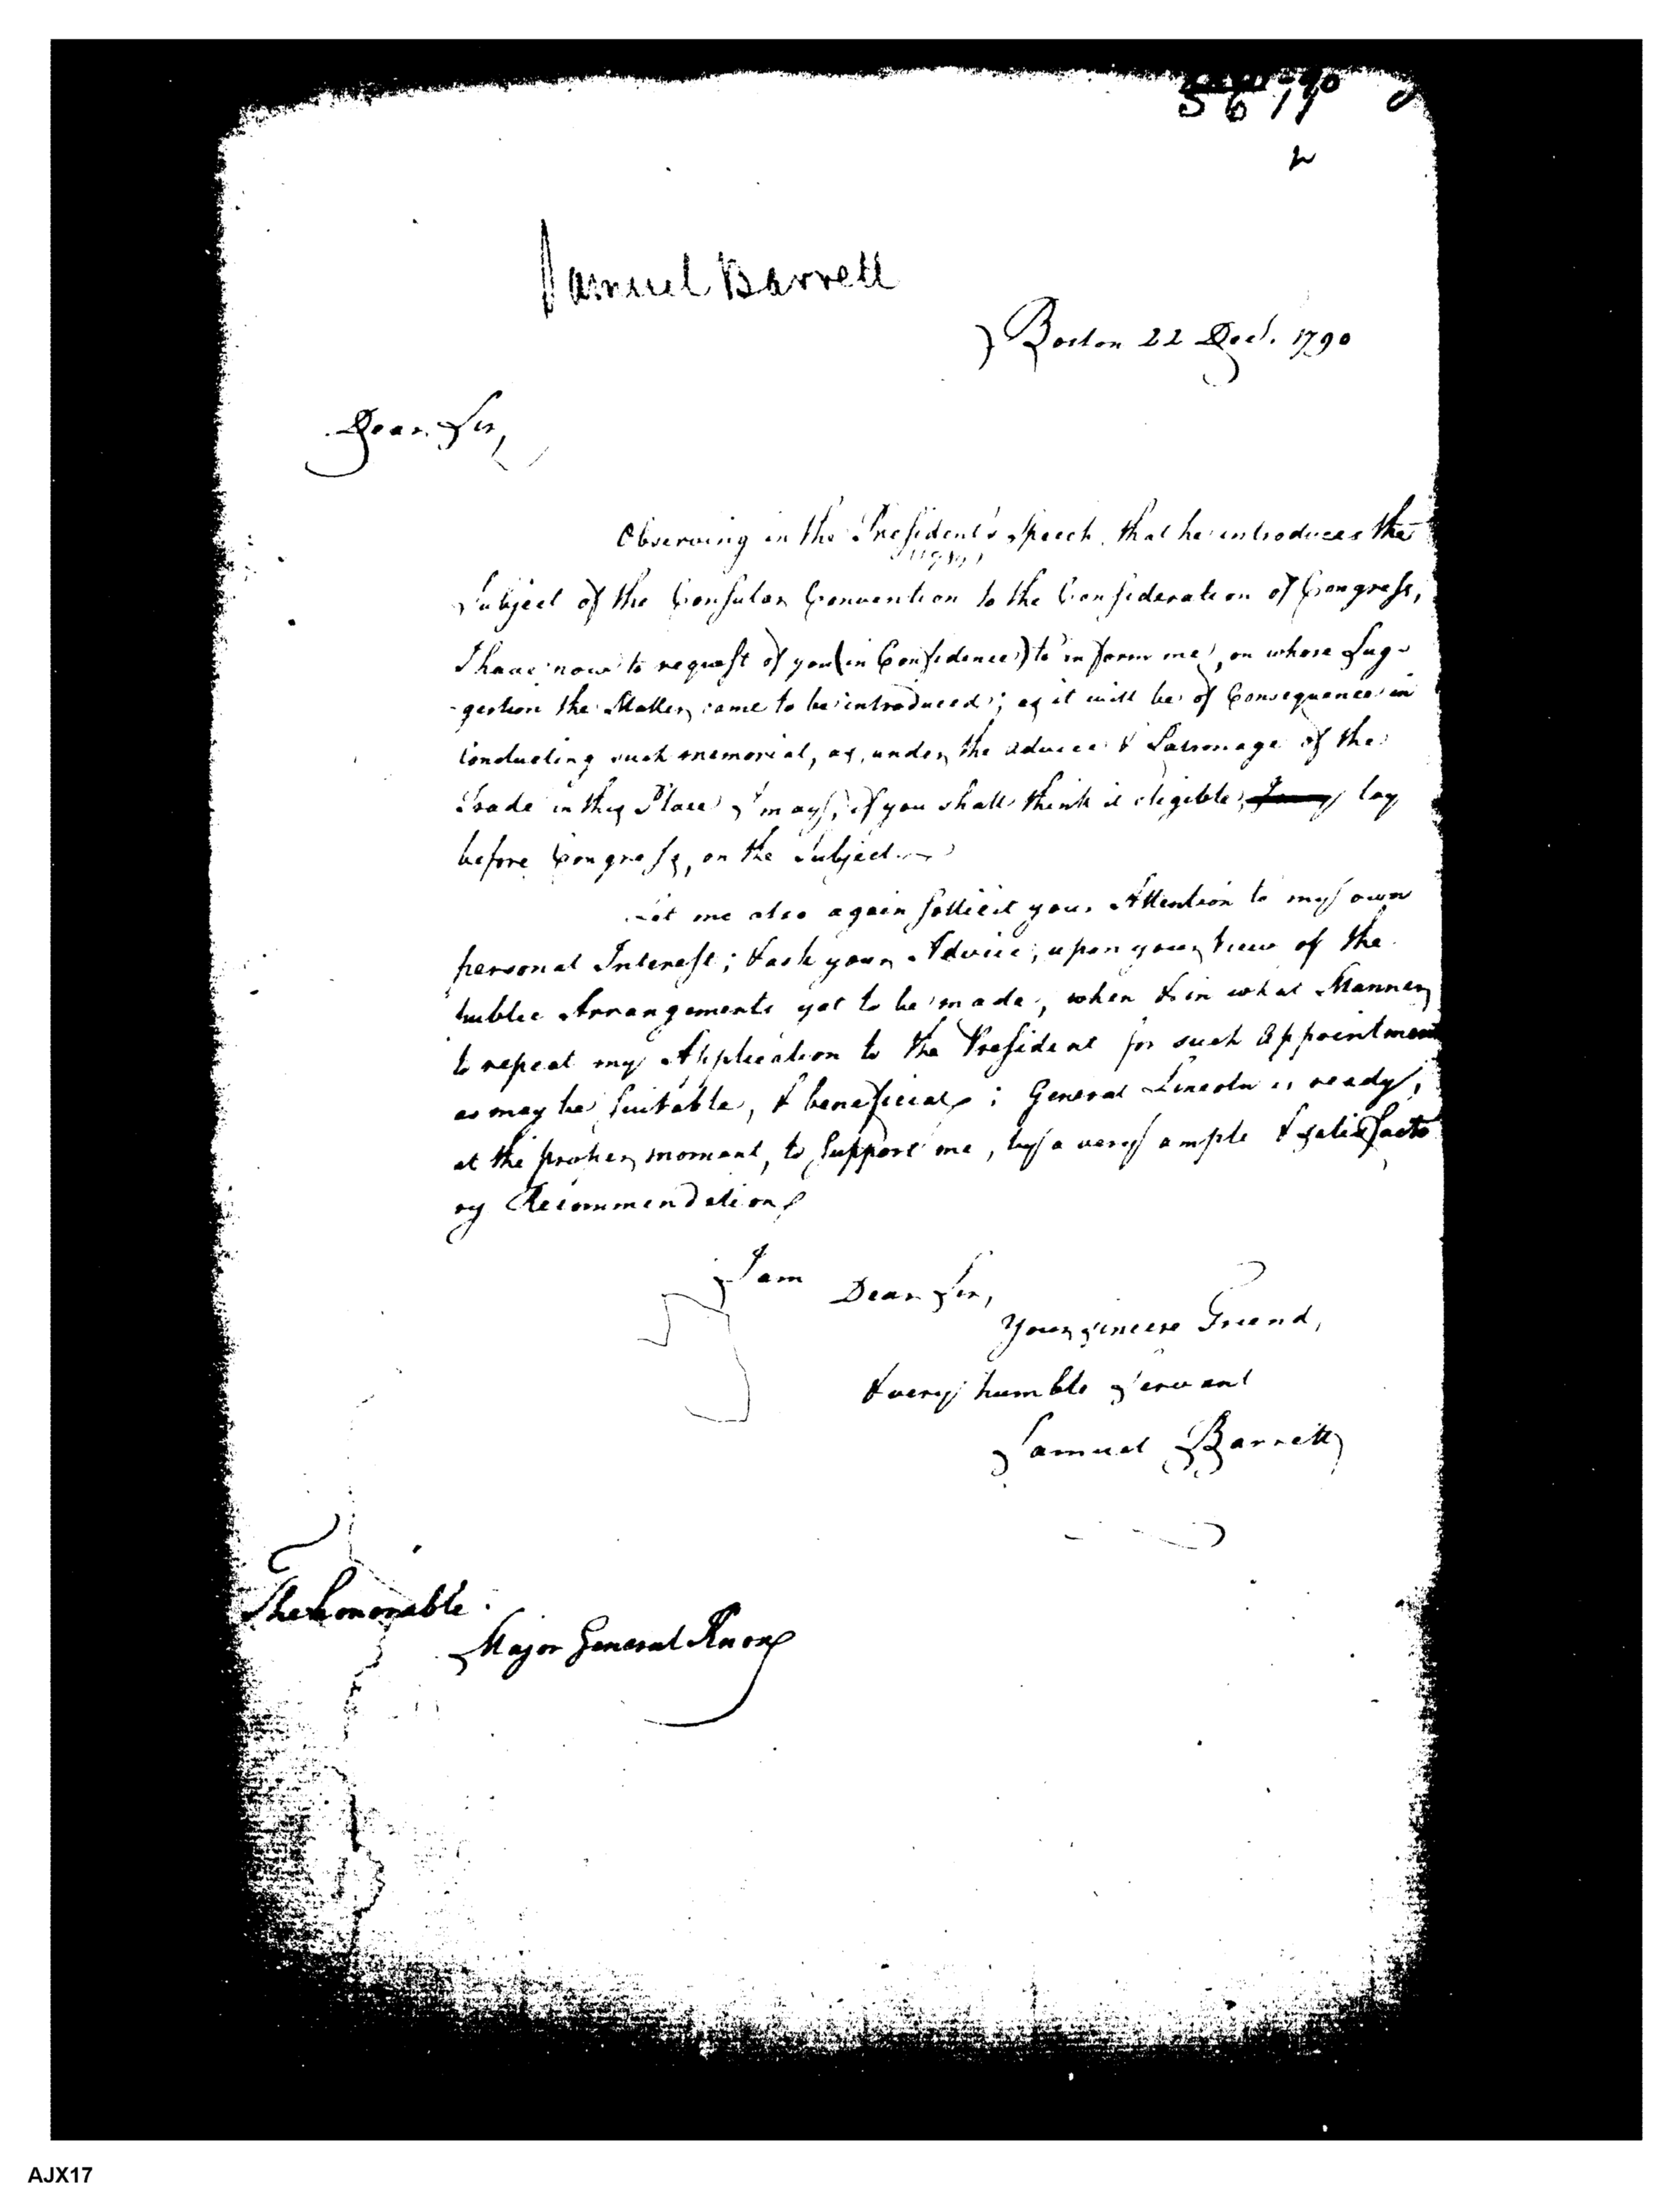 Samuel Barrett
Boston 22 Decr. 1790
Dear Sir,
Observing in the President's Speech, that he introduces the
Subject of the Consular Convention to the Consideration of Congress,
I have now to request of you (in Confidence) to inform me, on whose Sug-
-gestion the Matter came to be introduced; as it will be of Consequence in
conducting such memorial, as, under the advice & Patronage of the
Trade in this Place I may, if you shall think it eligible, lay
before Congress, on the Subject.
Let me also again sollicit your Attention to my own
personal Interest; & ask your Advice, upon your View of the
public Arrangements yet to be made, when & in what Manner
to repeat my Application to the President for such Appointment
as may be suitable, & beneficial; General Lincoln is ready,
at the proper moment, to support me, by a very ample & satisfacto
ry Recommendation
I am
Dear Sir,
Your sincere Friend,
& very humble Servant
Samuel Barrett
The Honorable
Major General Knox
AJX17